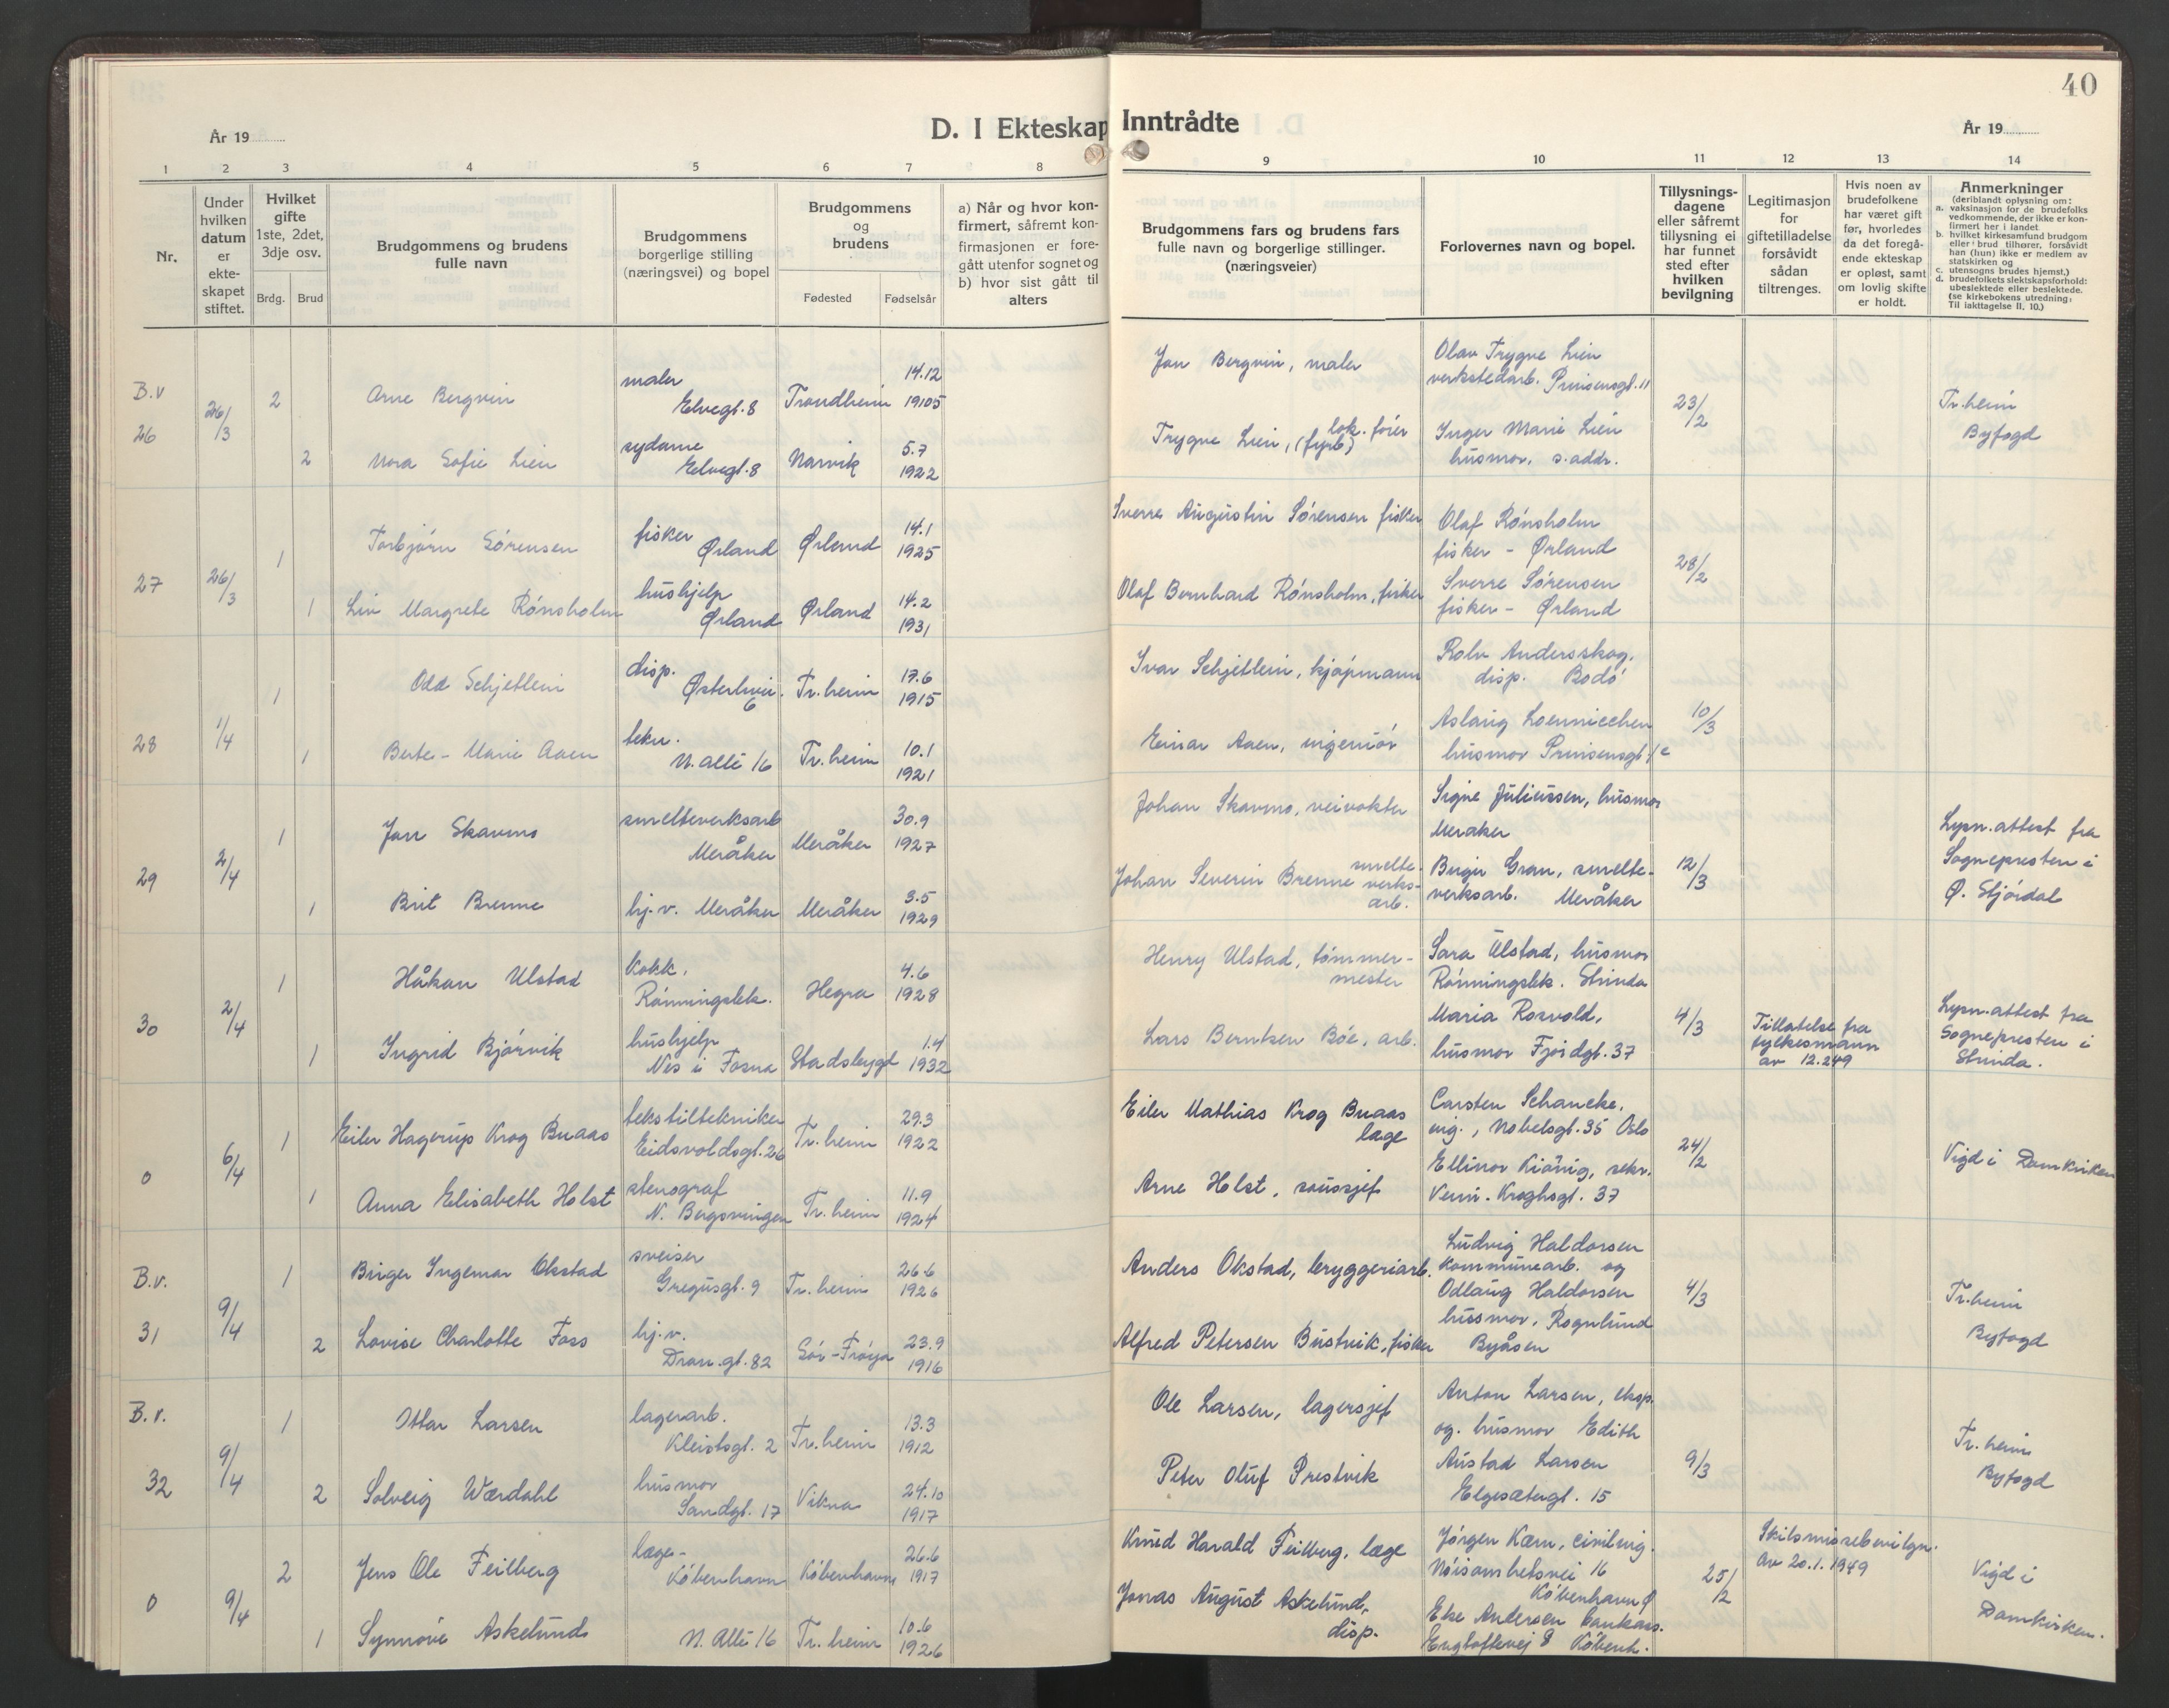 40
År 19
D. I Ekteskap Inntrådte
År 19
1 2 3 4 5 6 7 8 9 10 11 12 13 14
Nr.
Under hvilken datum er ekte-skapet stiftet.
Hvilket gifte 1ste, 2det, 3dje osv.
Brdg. Brud
Brudgommens og brudens fulle navn
Brudgommens borgerlige stilling (næringsvei) og bopel
Brudgommens og brudens
Fødested Fødselsår
a) Når og hvor kon-
firmert, såfremt kon-
firmasjonen er fore-
gått utenfor sognet og
b) hvor sist gått til
alters
Brudgommens fars og brudens fars
fulle navn og borgerlige stillinger.
(næringsveier)
Forlovernes navn og bopel.
Tillysnings-
dagene
eller såfremt
tillysning ei
har funnet
sted efter
hvilken
bevilgning
Legitimasjon
for
giftetilladelse
forsåvidt
sådan
tiltrenges.
Hvis noen av
brudefolkene
har været gift
før, hvorledes
da det foregå-
ende ekteskap
er opløst, samt
om lovlig skifte
er holdt.
Anmerkninger
(deriblandt oplysning om:
a. vaksinasjon for de brudefolks
vedkommende, der ikke er kon-
firmert her i landet
b. hvilket kirkesamfund brudgom
eller brud tilhører, forsåvidt
han (hun) ikke er medlem av
statskirken og
c. utensogns brudes hjemst.)
d. brudefolkets slektskapsforhold:
ubeslektede eller beslektede.
(se kirkebokens utredning:
Til iakttagelse II, 10.)
B.v 26 26/3
2 Arne Bergvin maler Elvegt. 8 Trondheim 14.12 19105
Jon Bergvin, maler
Olav Trygve Lien
verkstedarb. Prinsensgt. 11
23/2
Tr.heim
Byfogd
2 Nora Sofie Lien sydame Elvegt. 8 Narvik 5.7 1922
Trygve Lien, (fyrb) lok. fører
Inger Marie Lien
husmor, s. addr.
27 26/3
1 Torbjørn Sørensen fisker Ørland Ørland 14.1 1925
Sverre Augustin Sørensen fisker
Olaf Rønsholm
fisker - Ørland
28/2
1 Liv Margrete Rønsholm hushjelp Ørland Ørland 14.2 1931
Olaf Bernhard Rønsholm, fisker
Sverre Sørensen
fisker - Ørland
28 1/4
1 Odd Schjetlein disp. Østerlivei. 6 Tr.heim 17.6 1915
Ivar Schjetlein, kjøpmann
Rolv Andersskog.
disp. Bodø
10/3
1 Berte-Marie Aaen tekn. N. allé 16 Tr.heim 10.1 1921
Einar Aaen, ingeniør
Aslaug Loennicchen
husmor Prinsensgt. 1c
29 2/4
1 Jon Skavmo smelteverksarb Meråker Meråker 30.9 1927
Johan Skavmo, veivokter
Signe Juliussen, husmor
Meraker
12/3
Lysn. attest fra
Sognepresten i
Ø. Stjørdal
1 Brit Brenne hj. v. Meråker Meråker 3.5 1929
Johan Severin Brenne smelte-verks-arb.
Birger Gran, smelte-
verksarb. Meråker
30 2/4
1 Håkon Ulstad Kokk, Rønningslek. Hegra 4.6 1928
Henry Ulstad, tømmer-
mester
Sara Ulstad, husmor
Rønningslek. Strinda
4/3
Tillatelse fra
fylkesmann
av 12.2 49
Lysn. attest fra
Sognepresten i
Strinda.
1 Ingrid Bjørvik hushjelp Nes i Fosna Stadsbygd 1.4 1932
Lars Berntsen Bøe, arb.
Maria Rosvold,
husmor Fjordgt. 37
0 6/4
1 Eiler Hagerup Krog Buaas tekstiltekniker Eidsvoldsgt. 26 Tr.heim 29.3 1922
Eiler Mathias Krog Buaas
læge
Carsten Schancke,
ing., Nobelsgt. 35 Oslo
24/2
Vigd i Domkirken
1 Anna Elisabeth Holst stenograf N. Bergsvingen Tr.heim 11.9 1924
Arne Holst, sousjef
Ellinor Kiönig, sekr.
Venn. Kroghsgt. 37
B.v. 31 9/4
1 Birger Ingemar Okstad sveiser Gregusgt. 9 Tr.heim 26.6 1926
Anders Okstad, bryggeriarb.
Ludvig Haldorsen
kommunearb. og
Odlaug Haldorsen
husmor, Rognlund
Byåsen
4/3
Tr.heim
Byfogd
2 Lovise Charlotte Foss hj. v. Dron. gt. 82 Sør-Frøya 23.9 1916
Alfred Petersen Bustvik, fisker
B.v. 32 9/4
1 Ottar Larsen lagerarb. Kleistsgt. 2 Tr.heim 13.3 1912
Ole Larsen, lagersjef
Anton Larsen, eksp.
og. husmor Edith
Austad Larsen
Elgesætergt. 15
9/3
Tr.heim
Byfogd
2 Solveig Wærdahl husmor Sandgt. 17 Vikna 24.10 1917
Peter Oluf Prestvik
0 9/4
2 Jens Ole Feilberg læge- København København 26.6 1917
Knud Harald Feilberg, læge
Jørgen Kærn, civiling.
Nøisomhetsvei 16
København Ø
25/2
Skilsmissebevilgn.
av 20.1.1949
Vigd i
Domkirken.
1 Synnøve Askelund N. Allé 16 Tr.heim 10.6 1926
Jonas August Askelund,
disp.
Else Andersen bankass.
Engtoftevej 8 Københ.